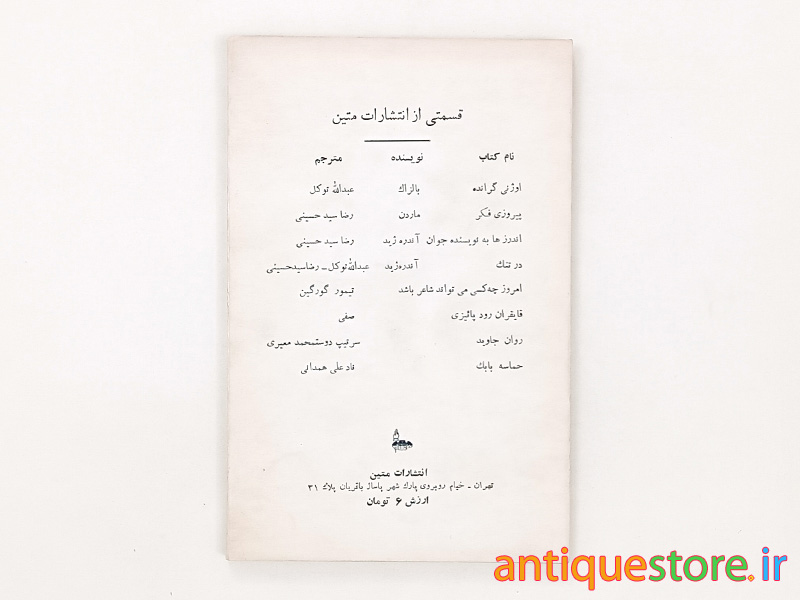 قسمتی از انتشارات متین
نام کتاب نویسنده مترجم
اوژنی گرانده بالزاك عبدالله توکل
پیروزی فکر ماردن رضا سید حسینی
اندرز ها به نویسنده جوان آندره ژید رضا سید حسینی
در تنك آندره‌ژید عبدالله‌توکل ـ رضاسیدحسینی
امروز چه‌کسی می تواند شاعر باشد تیمور گورگین
قایقران رود پائیزی صفی
روان جاوید سرتیپ دوستمحمد معیری
حماسه بابك نادعلی همدانی
انتشارات متین
تهران ـ خیام روبروی پارك شهر پاساژ باقریان پلاك ۳۱
ارزش ۶ تومان
antiquestore.ir